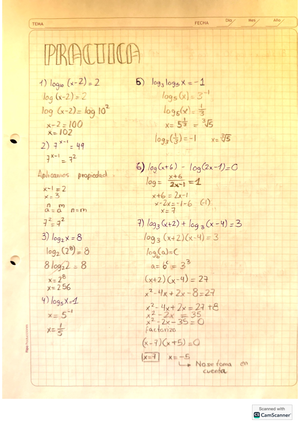 TEMA
FECHA
PRACTICA
1) log₁₀ (x-2) = 2
log (x-2) = 2
log (x-2) = log 10²
x-2 = 100
x = 102
2) 7ˣ⁻¹ = 49
7ˣ⁻¹ = 7²
Aplicamos propiedad
x-1 = 2
x = 3
aⁿ = aᵐ n=m
7² = 7²
3) log₂ x = 8
log₂ (2⁸) = 8
8 log₂ 2 = 8
x = 2⁸
x = 256
x = 5⁻¹
x = 1/5
5) log₃ log₅ x = -1
log₅ (x) = 3⁻¹
log₅ (x) = 1/3
x = 5^(1/3) = ³√5
log₃ (1/3) = -1 x = ³√5
6) log(x+6) - log(2x-1) = 0
log = x+6/2x-1 = 1
x+6 = 2x-1
x-2x = -1-6 (-1)
x = 7
7) log₃ (x+2) + log₃ (x-4) = 3
log₃ (x+2)(x-4) = 3
log₆(a) = C
(x+2)(x-4) = 27
x²-4x+2x-8 = 27
x²-4x+2x = 27+8
x²-2x = 35
x²-2x-35 = 0
factorizo
(x-7)(x+5) = 0
x=7 x = -5
No se toma en
cuenta
Scanned with
CamScanner